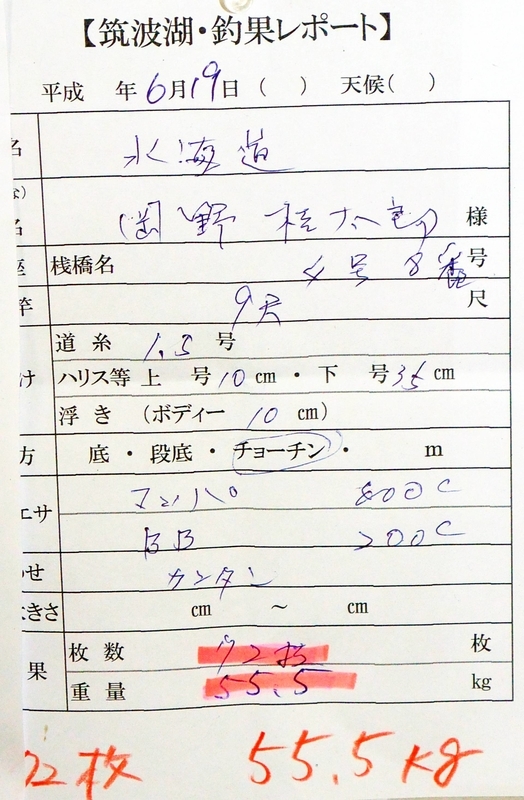 【筑波湖・釣果レポート】
平成 年 6月19日 ( ) 天候( )
名 水海道
名 岡野 桂太郎 様
座 桟橋名 4号 8番 号
竿 9尺 尺
道糸 1.5 号
け ハリス等 上 号 10 cm ・ 下 号 35 cm
浮き (ボディー 10 cm)
方 底 ・ 段底 ・ チョーチン ・ m
エサ マッハ 800C
BB 200C
わせ カンタン
大きさ cm ～ cm
果 枚数 92枚 枚
重量 55.5 kg
92枚 55.5kg